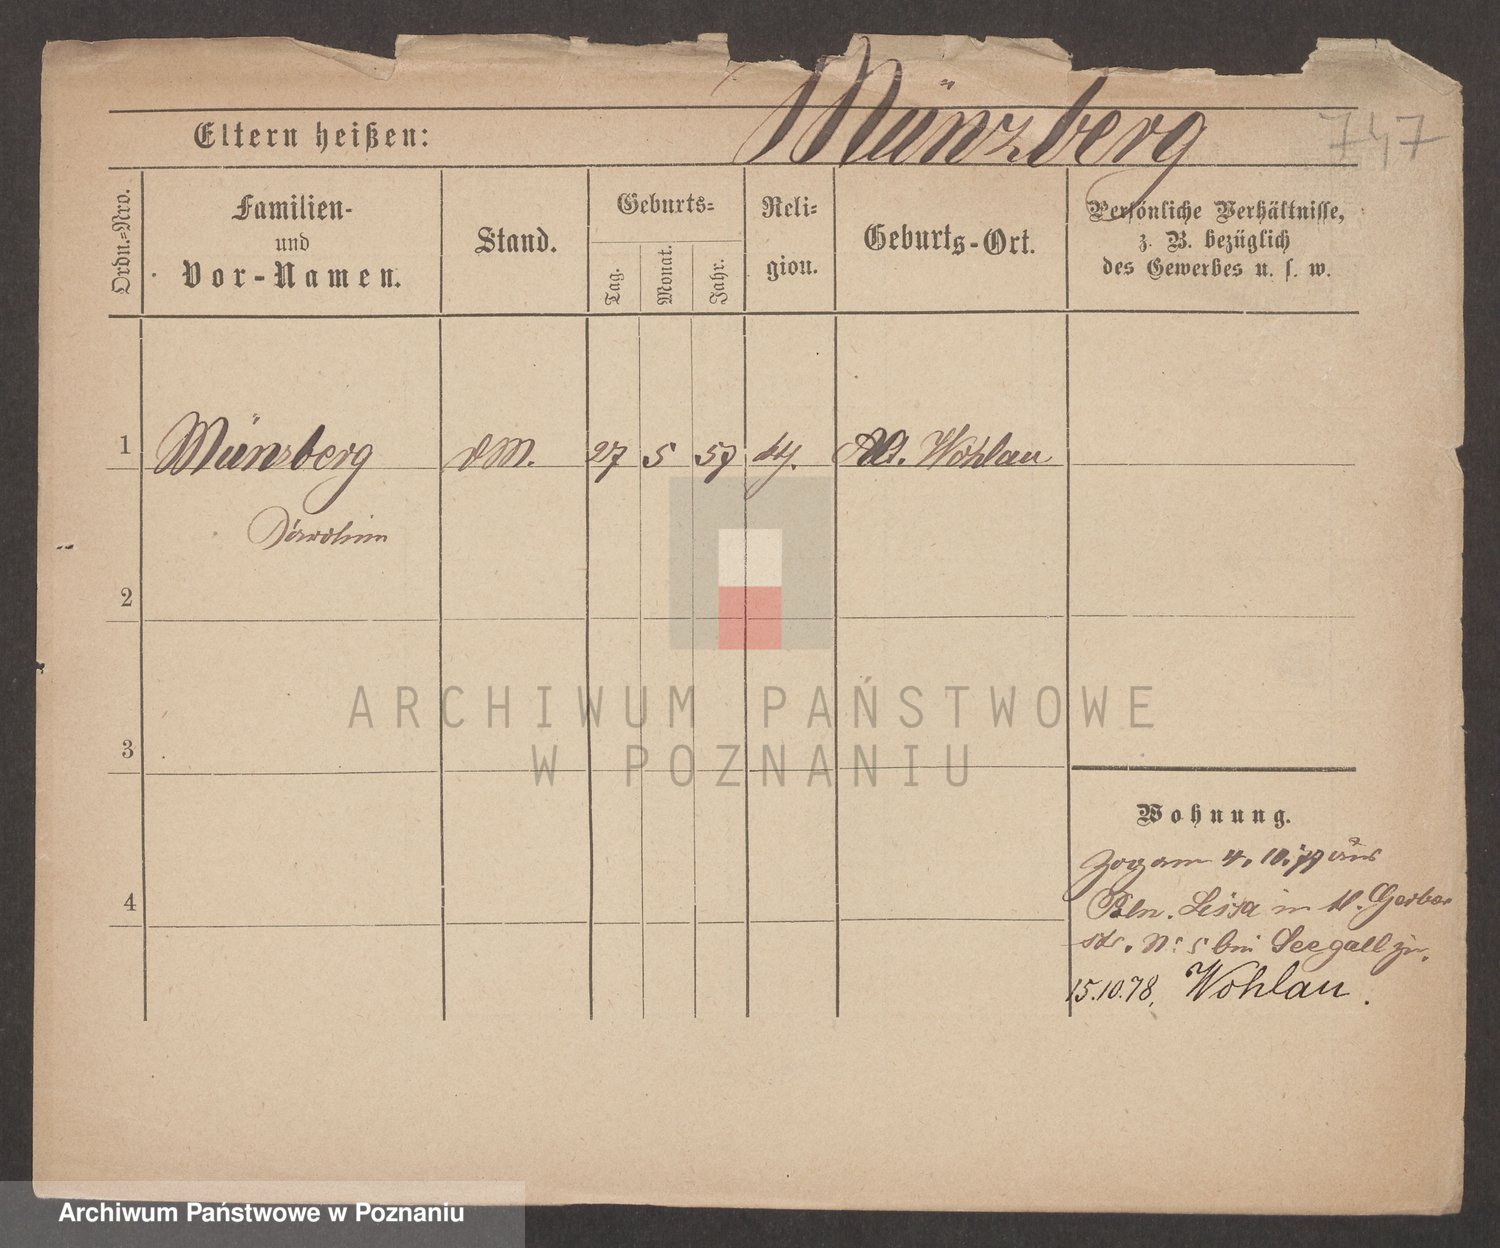 Münzberg
747
Eltern heißen:
Ordn.-Nro.
Familien-
und
Vor-Namen.
Stand.
Geburts-
Tag.
Monat.
Jahr.
Reli-
gion.
Geburts-Ort.
Persönliche Verhältnisse,
z. B. bezüglich
des Gewerbes u. s. w.
1 Münzberg d M. 27 5 57 Alt. Wohlau
2
3
4
Wohnung.
Zog am 4. 10. 79 aus
Pln. Lissa in Gerber
str. N: 5 bei Seegall zu.
15.10.78, Wohlau.
ARCHIWUM PAŃSTWOWE
W POZNANIU
Archiwum Państwowe w Poznaniu